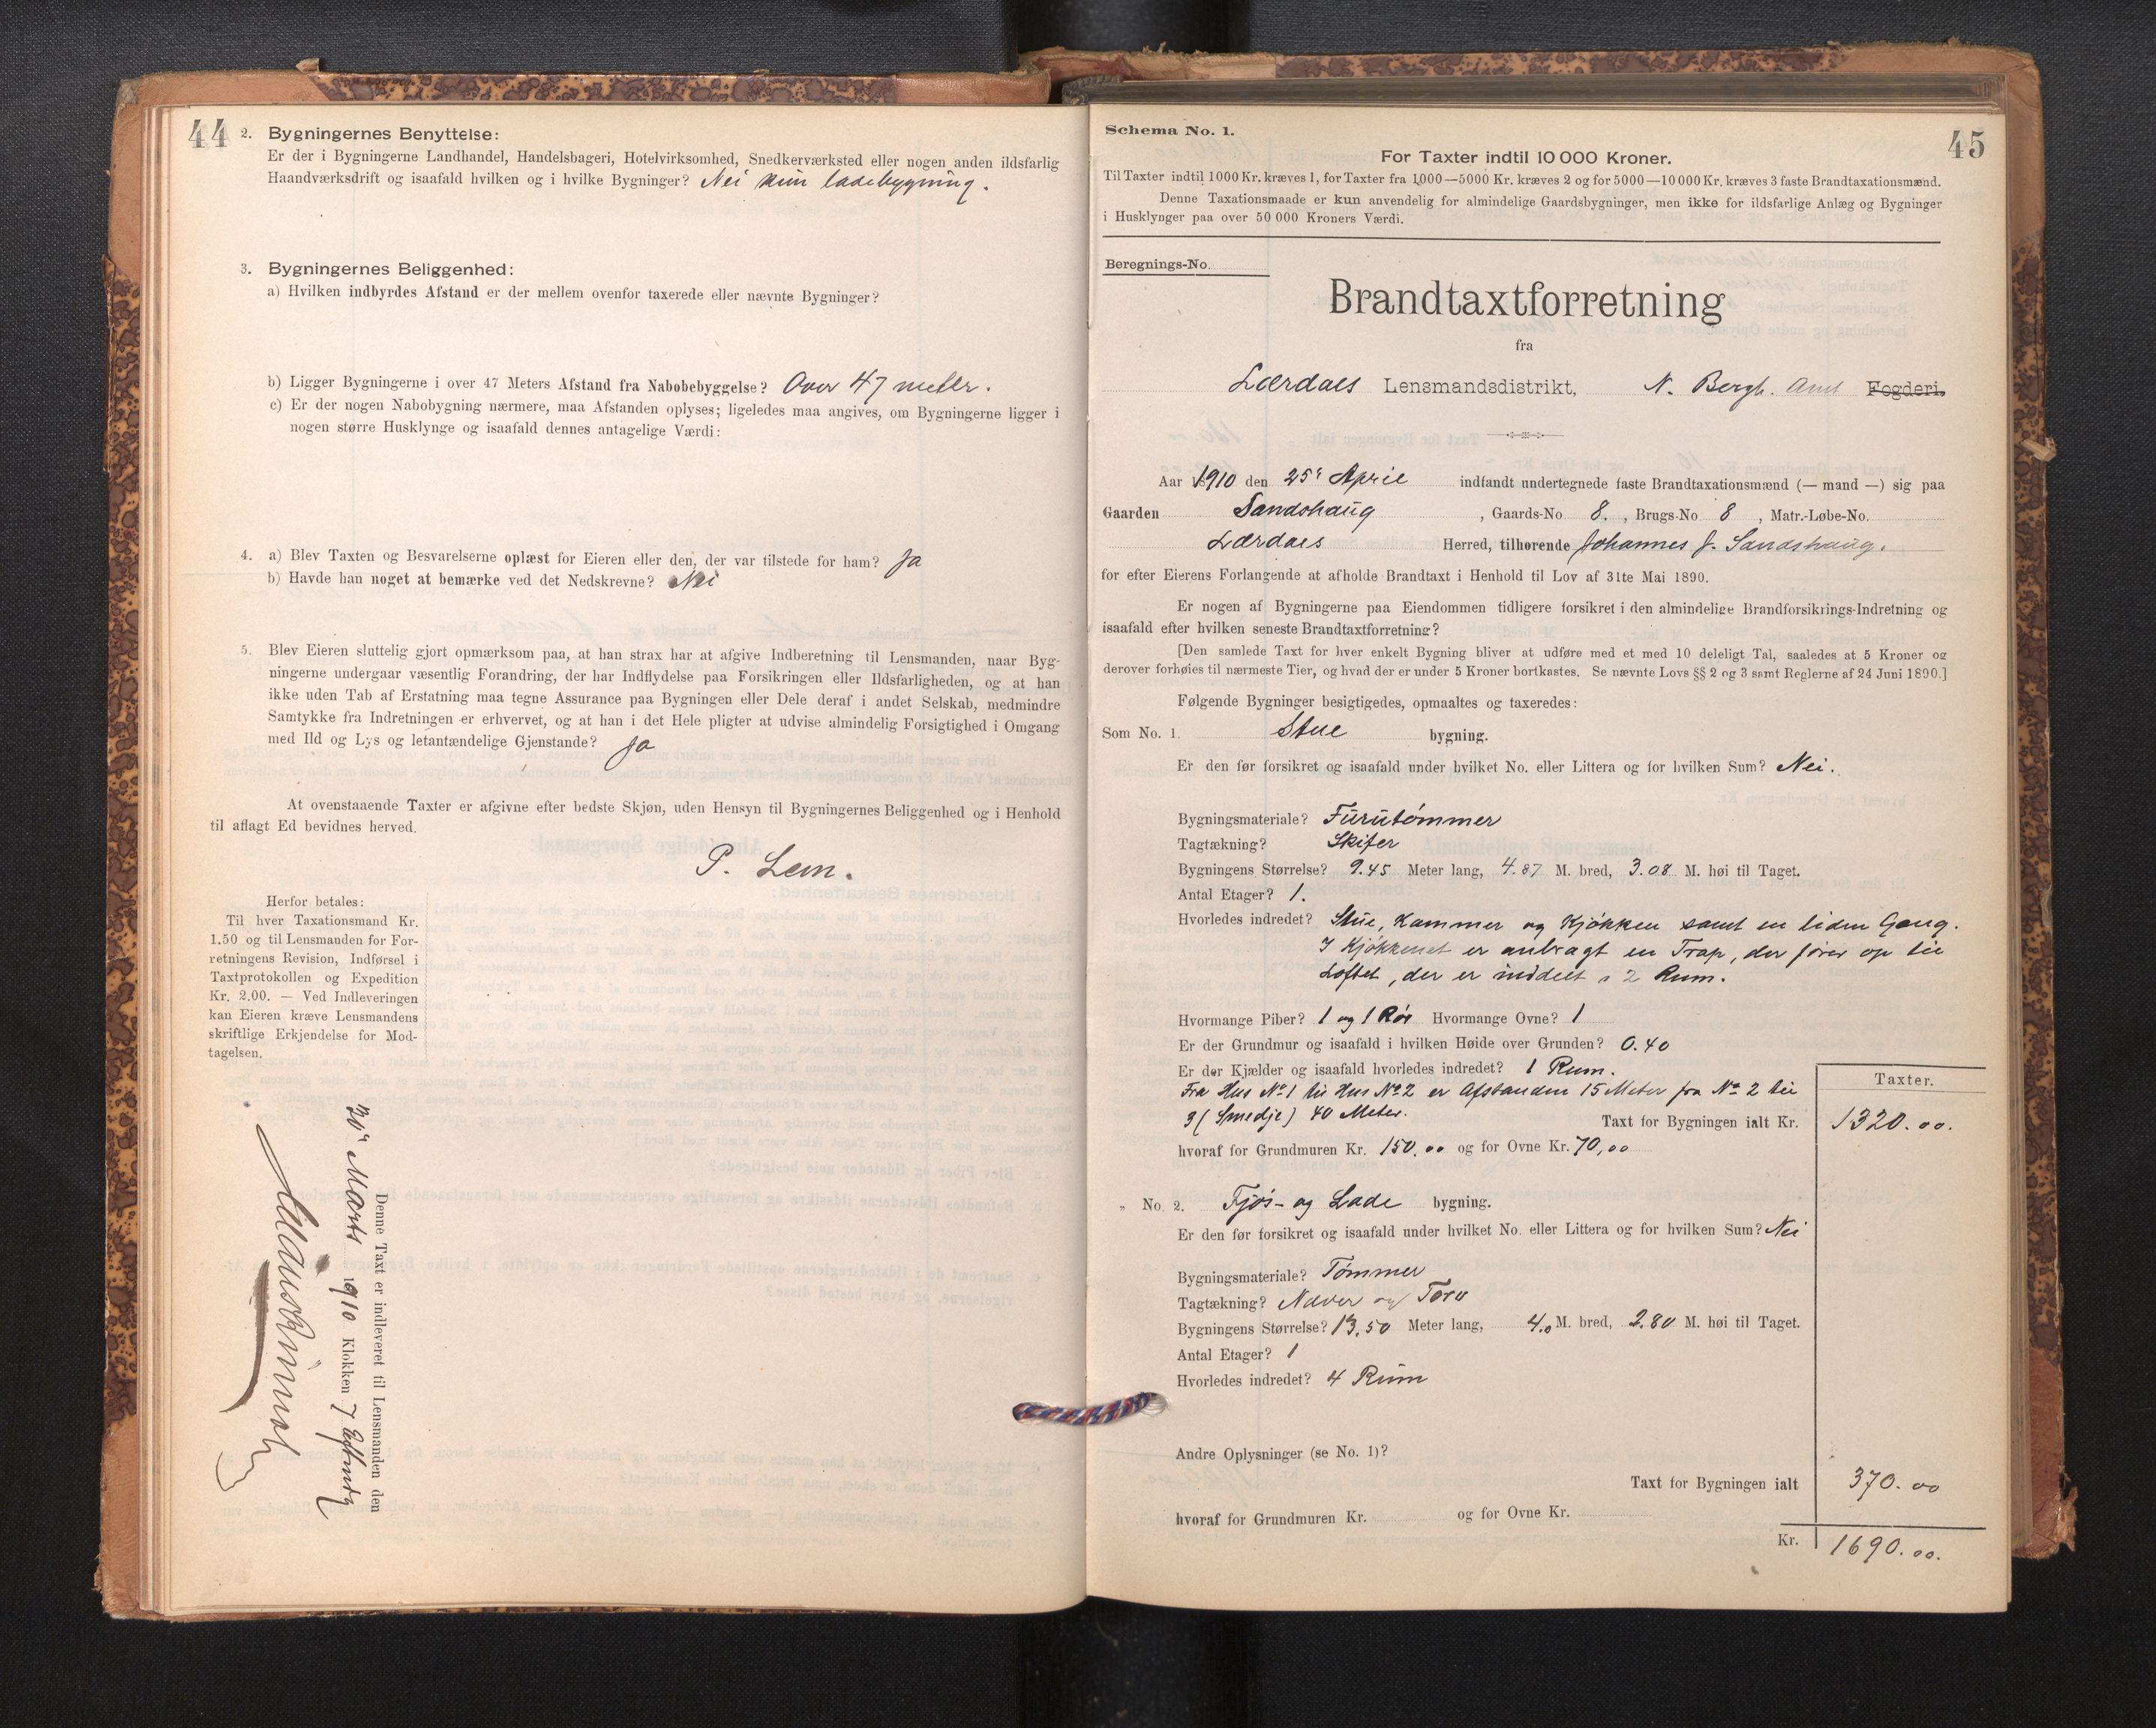 44
2. Bygningernes Benyttelse:
Er der i Bygningerne Landhandel, Handelsbageri, Hotelvirksomhed, Snedkerværksted eller nogen anden ildsfarlig
Haandværksdrift og isaafald hvilken og i hvilke Bygninger? Nei kun ladebygning.
3. Bygningernes Beliggenhed:
a) Hvilken indbyrdes Afstand er der mellem ovenfor taxerede eller nævnte Bygninger?
b) Ligger Bygningerne i over 47 Meters Afstand fra Nabobebyggelse? Over 47 meter.
c) Er der nogen Nabobygning nærmere, maa Afstanden oplyses; ligeledes maa angives, om Bygningerne ligger i
nogen større Husklynge og isaafald dennes antagelige Værdi:
4. a) Blev Taxten og Besvarelserne oplæst for Eieren eller den, der var tilstede for ham? Ja
b) Havde han noget at bemærke ved det Nedskrevne? Nei
5. Blev Eieren sluttelig gjort opmærksom paa, at han strax har at afgive Indberetning til Lensmanden, naar Byg-
ningerne undergaar væsentlig Forandring, der har Indflydelse paa Forsikringen eller Ildsfarligheden, og at han
ikke uden Tab af Erstatning maa tegne Assurance paa Bygningen eller Dele deraf i andet Selskab, medmindre
Samtykke fra Indretningen er erhvervet, og at han i det Hele pligter at udvise almindelig Forsigtighed i Omgang
med Ild og Lys og letantændelige Gjenstande? Ja
At ovenstaaende Taxter er afgivne efter bedste Skjøn, uden Hensyn til Bygningernes Beliggenhed og i Henhold
til aflagt Ed bevidnes herved.
P. Lem.
Herfor betales:
Til hver Taxationsmand Kr.
1.50 og til Lensmanden for For-
retningens Revision, Indførsel i
Taxtprotokollen og Expedition
Kr. 2.00. — Ved Indleveringen
kan Eieren kræve Lensmandens
skriftlige Erkjendelse for Mod-
tagelsen.
Denne Taxt er indleveret til Lensmanden den
30' Marts 1910 Klokken 7 Eftmdg
45
Schema No. 1.
For Taxter indtil 10 000 Kroner.
Til Taxter indtil 1000 Kr. kræves 1, for Taxter fra 1000—5000 Kr. kræves 2 og for 5000—10 000 Kr. kræves 3 faste Brandtaxationsmænd.
Denne Taxationsmaade er kun anvendelig for almindelige Gaardsbygninger, men ikke for ildsfarlige Anlæg og Bygninger
i Husklynger paa over 50 000 Kroners Værdi.
Beregnings-No.
Brandtaxtforretning
fra
Lærdals Lensmandsdistrikt, N. Bergh. Amt Fogderi.
Aar 1910 den 25' April indfandt undertegnede faste Brandtaxationsmænd (— mand —) sig paa
Gaarden Sandshaug, Gaards-No 8., Brugs-No 8, Matr.-Løbe-No.
Lærdals Herred, tilhørende Johannes J. Sandshaug.
for efter Eierens Forlangende at afholde Brandtaxt i Henhold til Lov af 31te Mai 1890.
Er nogen af Bygningerne paa Eiendommen tidligere forsikret i den almindelige Brandforsikrings-Indretning og
isaafald efter hvilken seneste Brandtaxtforretning?
[Den samlede Taxt for hver enkelt Bygning bliver at udføre med et med 10 deleligt Tal, saaledes at 5 Kroner og
derover forhøies til nærmeste Tier, og hvad der er under 5 Kroner bortkastes. Se nævnte Lovs §§ 2 og 3 samt Reglerne af 24 Juni 1890.]
Følgende Bygninger besigtigedes, opmaaltes og taxeredes:
Som No. 1. Stue bygning.
Er den før forsikret og isaafald under hvilket No. eller Littera og for hvilken Sum? Nei.
Bygningsmateriale? Furutømmer
Tagtækning? Skifer
Bygningens Størrelse? 9.45 Meter lang, 4.87 M. bred, 3.08 M. høi til Taget.
Antal Etager? 1.
Hvorledes indredet? Stue, Kammer og Kjøkken samt en liden Gang.
I Kjøkkenet er anbragt en Trap, der fører op til
Loftet, der er inddelt i 2 Rum.
Hvormange Piber? 1 og 1 Rør Hvormange Ovne? 1
Er der Grundmur og isaafald i hvilken Høide over Grunden? 0.40
Er der Kjælder og isaafald hvorledes indredet? 1 Rum.
Fra Hus No 1 til Hus No 2 er Afstanden 15 Meter fra No 2 til
3 (Smedje) 40 Meter.
Taxter.
Taxt for Bygningen ialt Kr. 1320.00.
hvoraf for Grundmuren Kr. 150.00 og for Ovne Kr. 70,00
„ No. 2. Fjøs- og Lade bygning.
Er den før forsikret og isaafald under hvilket No. eller Littera og for hvilken Sum? Nei
Bygningsmateriale? Tømmer
Tagtækning? Næver og Torv
Bygningens Størrelse? 13.50 Meter lang, 4.0 M. bred, 2.80 M. høi til Taget.
Antal Etager? 1
Hvorledes indredet? 4 Rum
Andre Oplysninger (se No. 1)?
Taxt for Bygningen ialt 370.00
hvoraf for Grundmuren Kr. og for Ovne Kr.
Kr. 1690.00.